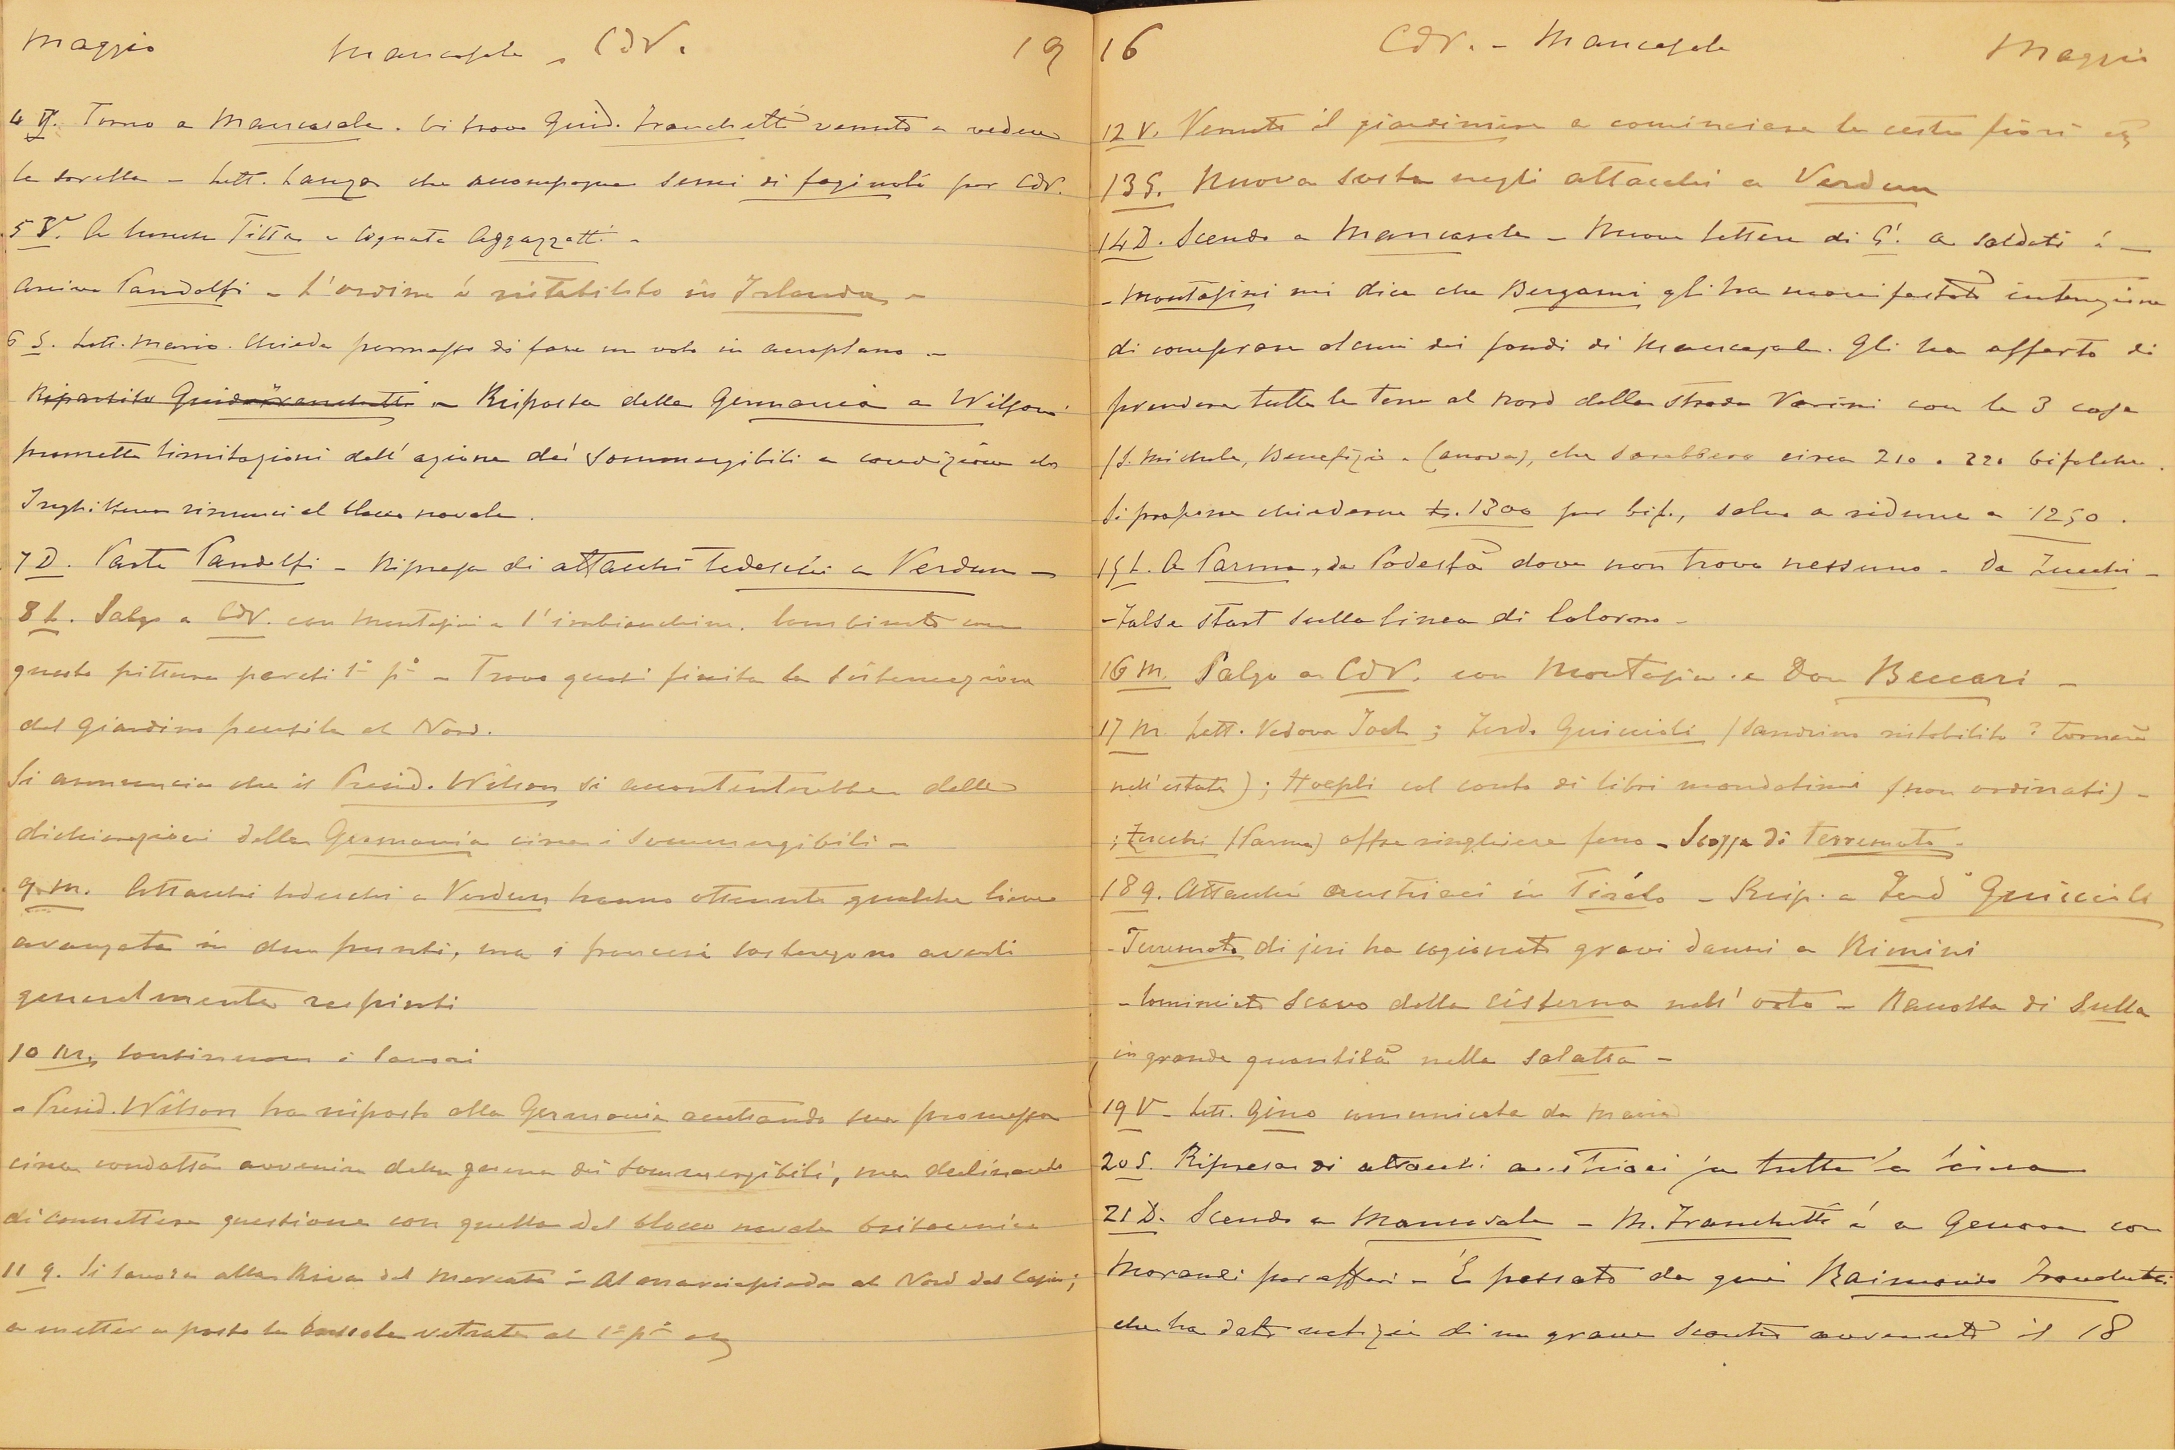 Maggio Mancasale, CdV. 19
4 G. Torno a Mancasale. Ci trovo Guid. Franchetti venuto a vedere
la sorella - Lett. Lanza che accompagna semi di fagiuoli per CdV.
5 V. A Titta e Cognata Aggazzotti -
Arriva Pandolfi - L'ordine è ristabilito in Irlanda -
6 S. Lett. Mario. Chiede permesso di fare un volo in aeroplano -
Ripartito Guido Franchetti - Risposta della Germania a Wilson:
promette limitazioni dell'azione dei sommergibili a condizione che
Inghilterra rinunci al blocco navale.
7 D. Parte Pandolfi - Ripresa di attacchi tedeschi a Verdun -
8 L. Salgo a CdV. con Montasini e l'imbianchino. Combinato con
questo pittura pareti 1° p° - Trovo quasi finita la sistemazione
del giardino pensile al Nord.
Si annuncia che il Presid. Wilson si accontenterebbe delle
dichiarazioni della Germania circa i sommergibili -
9 M. Attacchi tedeschi a Verdun hanno ottenuto qualche lieve
avanzata in due punti, ma i francesi sostengono averli
generalmente respinti
10 M. Continuano i lavori
- Presid. Wilson ha risposto alla Germania accettando sua promessa
circa condotta avvenire della guerra dei sommergibili, ma declinando
di connettere questione con quella del blocco navale britannico
11 G. Si lavora alla Riva del Mercato - Al marciapiede al Nord del Casino;
a metter a posto la bussola vetrata al 1° p°
16 CdV. - Mancasale Maggio
12 V. Venuto il giardiniere a cominciare la cesta fiori
13 S. Nuova sosta negli attacchi a Verdun
14 D. Scendo a Mancasale - Nuove lettere di G. a soldati -
- Montasini mi dice che Bergami gli ha manifestato intenzione
di comperare alcuni dei fondi di Mancasale. Gli ha offerto di
prendere tutte le terre al Nord della strada Varini con le 3 case
(S. Michele, Benefizio e Canova), che sarebbero circa 210 o 220 bifolche.
Si propone chiederne Lr. 1300 per bif., salvo a ridurre a 1250.
15 L. A Parma, da Podestà dove non trovo nessuno - Da Zucchi -
- False start sulla linea di Colorno -
16 M. Salgo a CdV. con Montasini e Don Beccari -
17 M. Lett. Vedova ; Ferd. Guiccioli (Sandrino ristabilito? tornerà
nell'estate); Hoepli col conto di libri mandatimi (non ordinati) -
; Zucchi (Parma) offre ringhiere ferro - Scossa di terremoto -
18 G. Attacchi austriaci in Tirolo - Risp. a Ferd° Guiccioli
- Terremoto di jeri ha cagionato gravi danni a Rimini
- Cominciato scavo della cisterna nell'orto - Raccolta di Sulla
in grande quantità nella salatta -
19 V. Lett. Gino comunicata da Maria
20 S. Ripresa di attacchi austriaci su tutta la linea
21 D. Scendo a Mancasale - M. Franchetti è a Genova con
Morandi per affari - È passato da qui Raimondo Franchetti
che ha dato notizie di un grave scontro avvenuto il 18